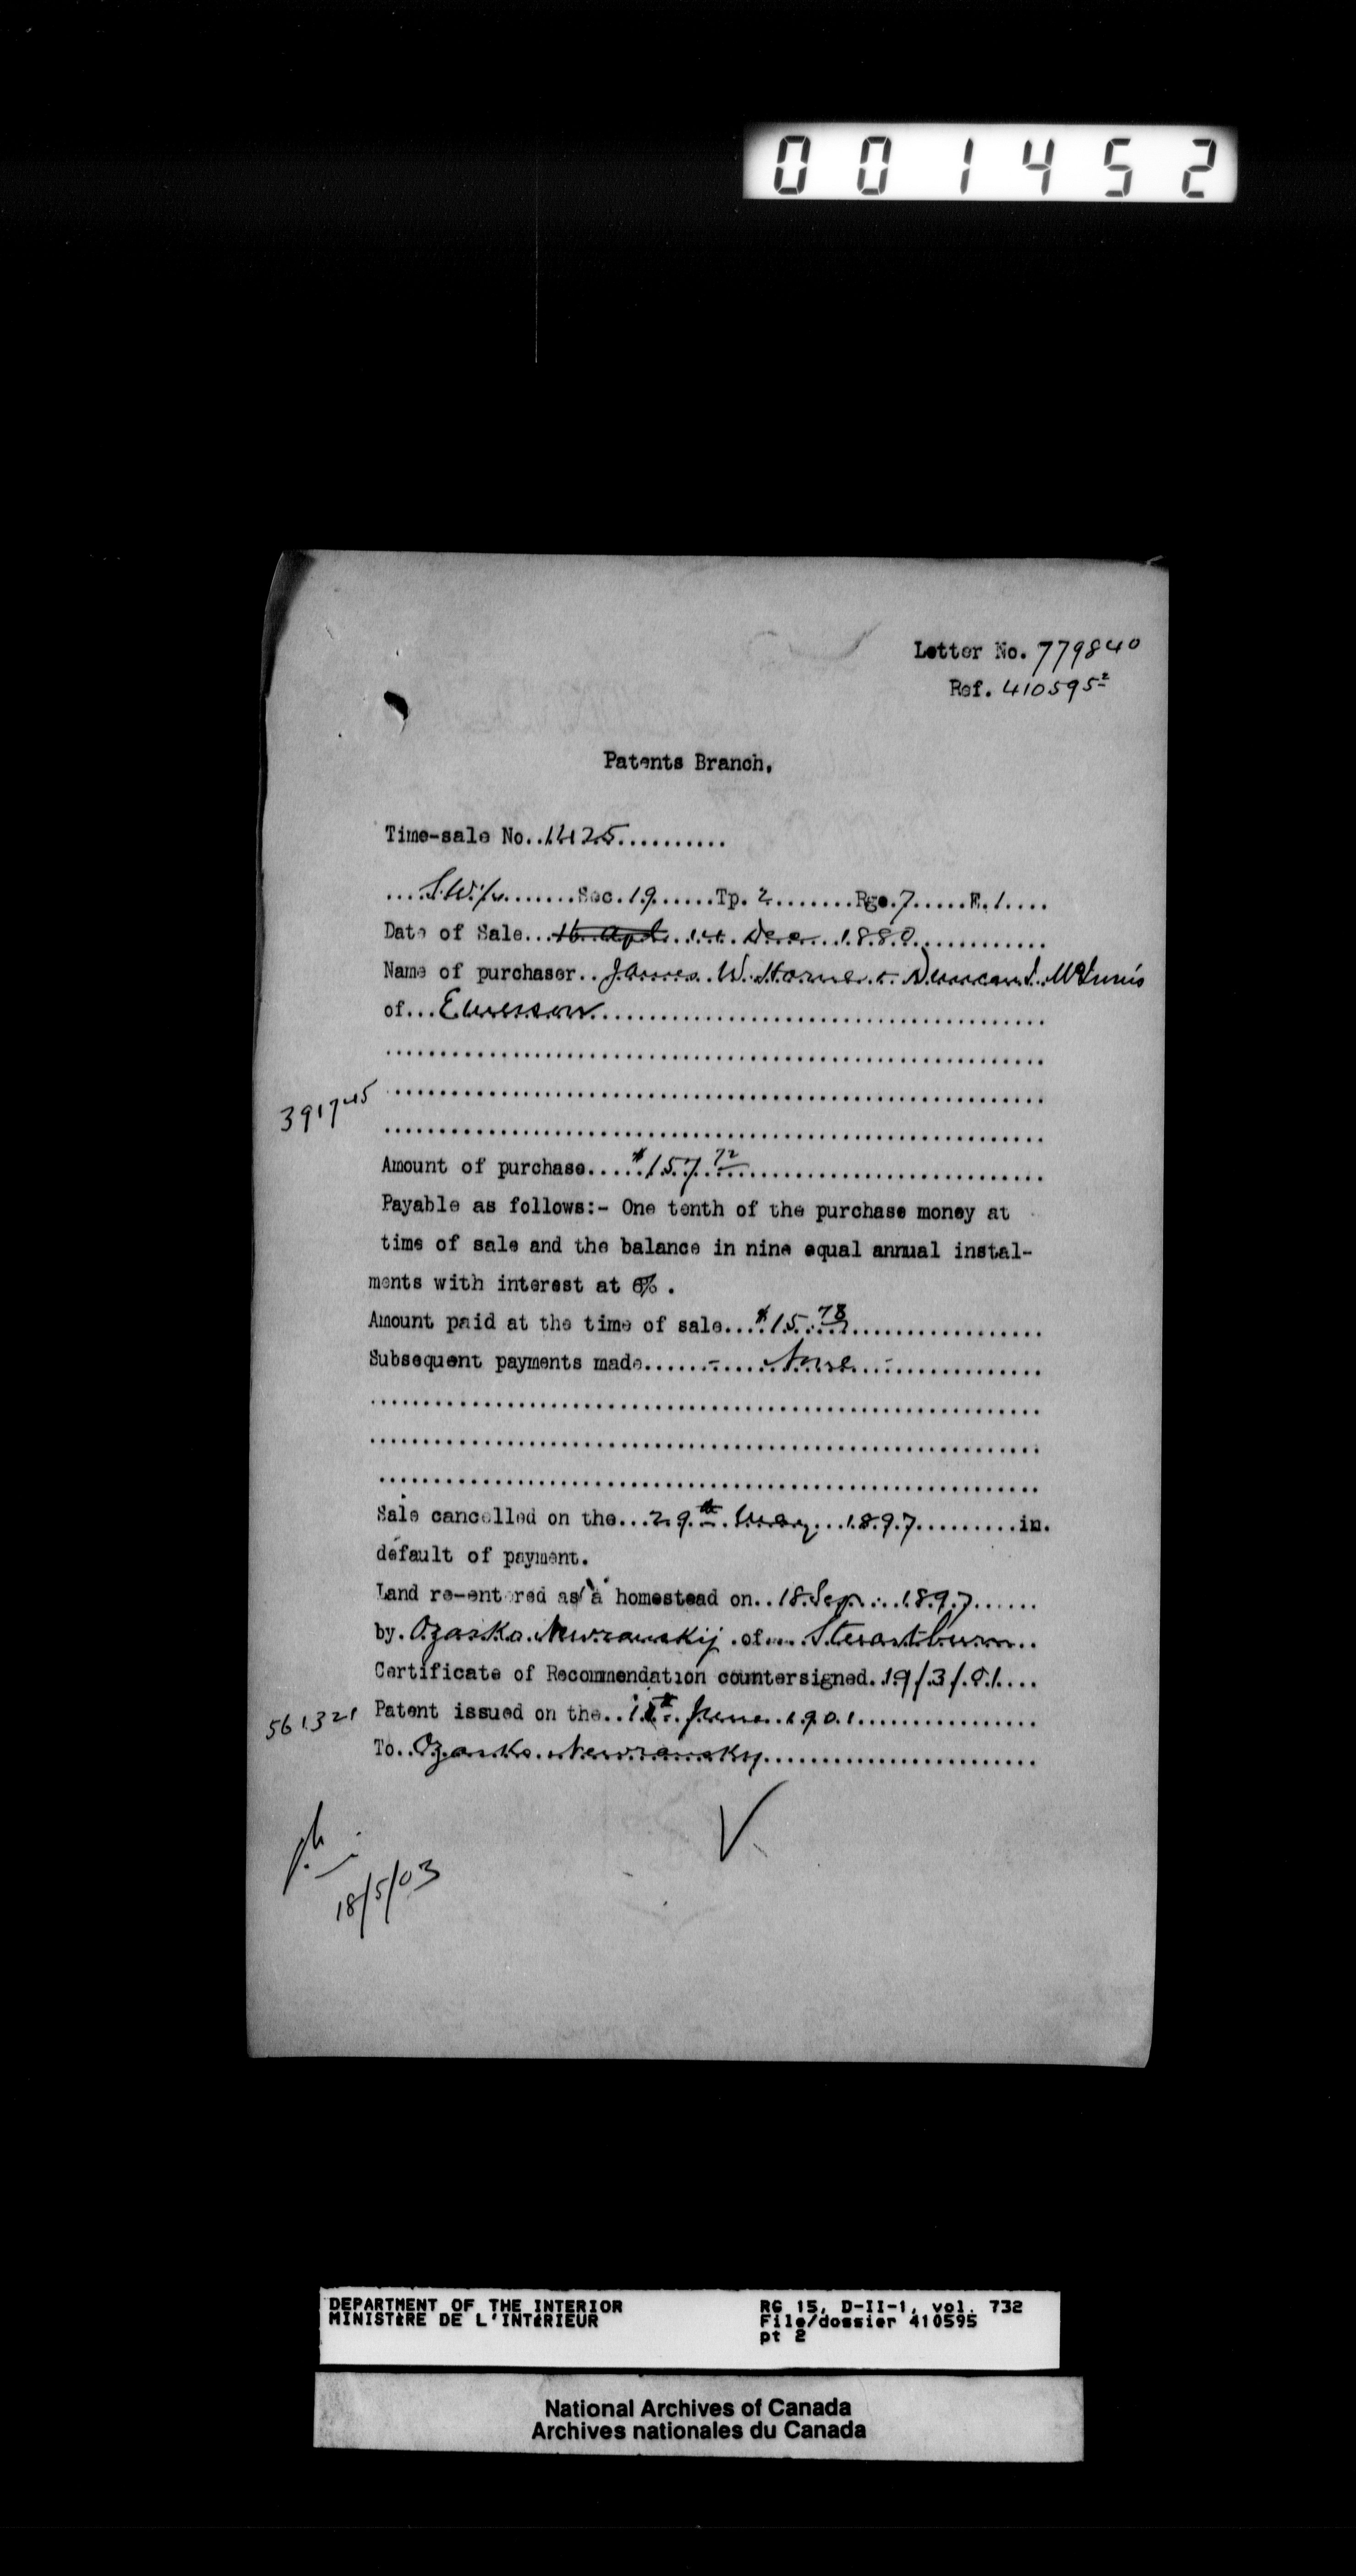 001452
Letter No. 779840
Ref. 410595²
Patents Branch.
Time-sale No..1425..........
....S.W.¼.......Sec.19......Tp. 2........Rge.7.....E.1....
Date of Sale...16 Apl...14. Dec...1880............
Name of purchaser..James W. Horne & Duncan J. McInnis
of...Emerson..........................................
391745
Amount of purchase.....$157.72..............................
Payable as follows:- One tenth of the purchase money at
time of sale and the balance in nine equal annual instal-
ments with interest at 6% .
Amount paid at the time of sale...$15.78...................
Subsequent payments made.......-.....None...-..............
Sale cancelled on the...29th. May...1897..........in.
default of payment.
Land re-entered as a homestead on..18.Sep...1897......
by.Ozarko.Newranskij.of...Stuartburn..
Certificate of Recommendation countersigned..19/3/.01....
561321 Patent issued on the.. June..1901.................
To..Ozarko.Newransky.........................
V
18/5/03
DEPARTMENT OF THE INTERIOR
MINISTÈRE DE L'INTÉRIEUR
RG 15, D-II-1, vol. 732
File/dossier 410595
pt 2
National Archives of Canada
Archives nationales du Canada